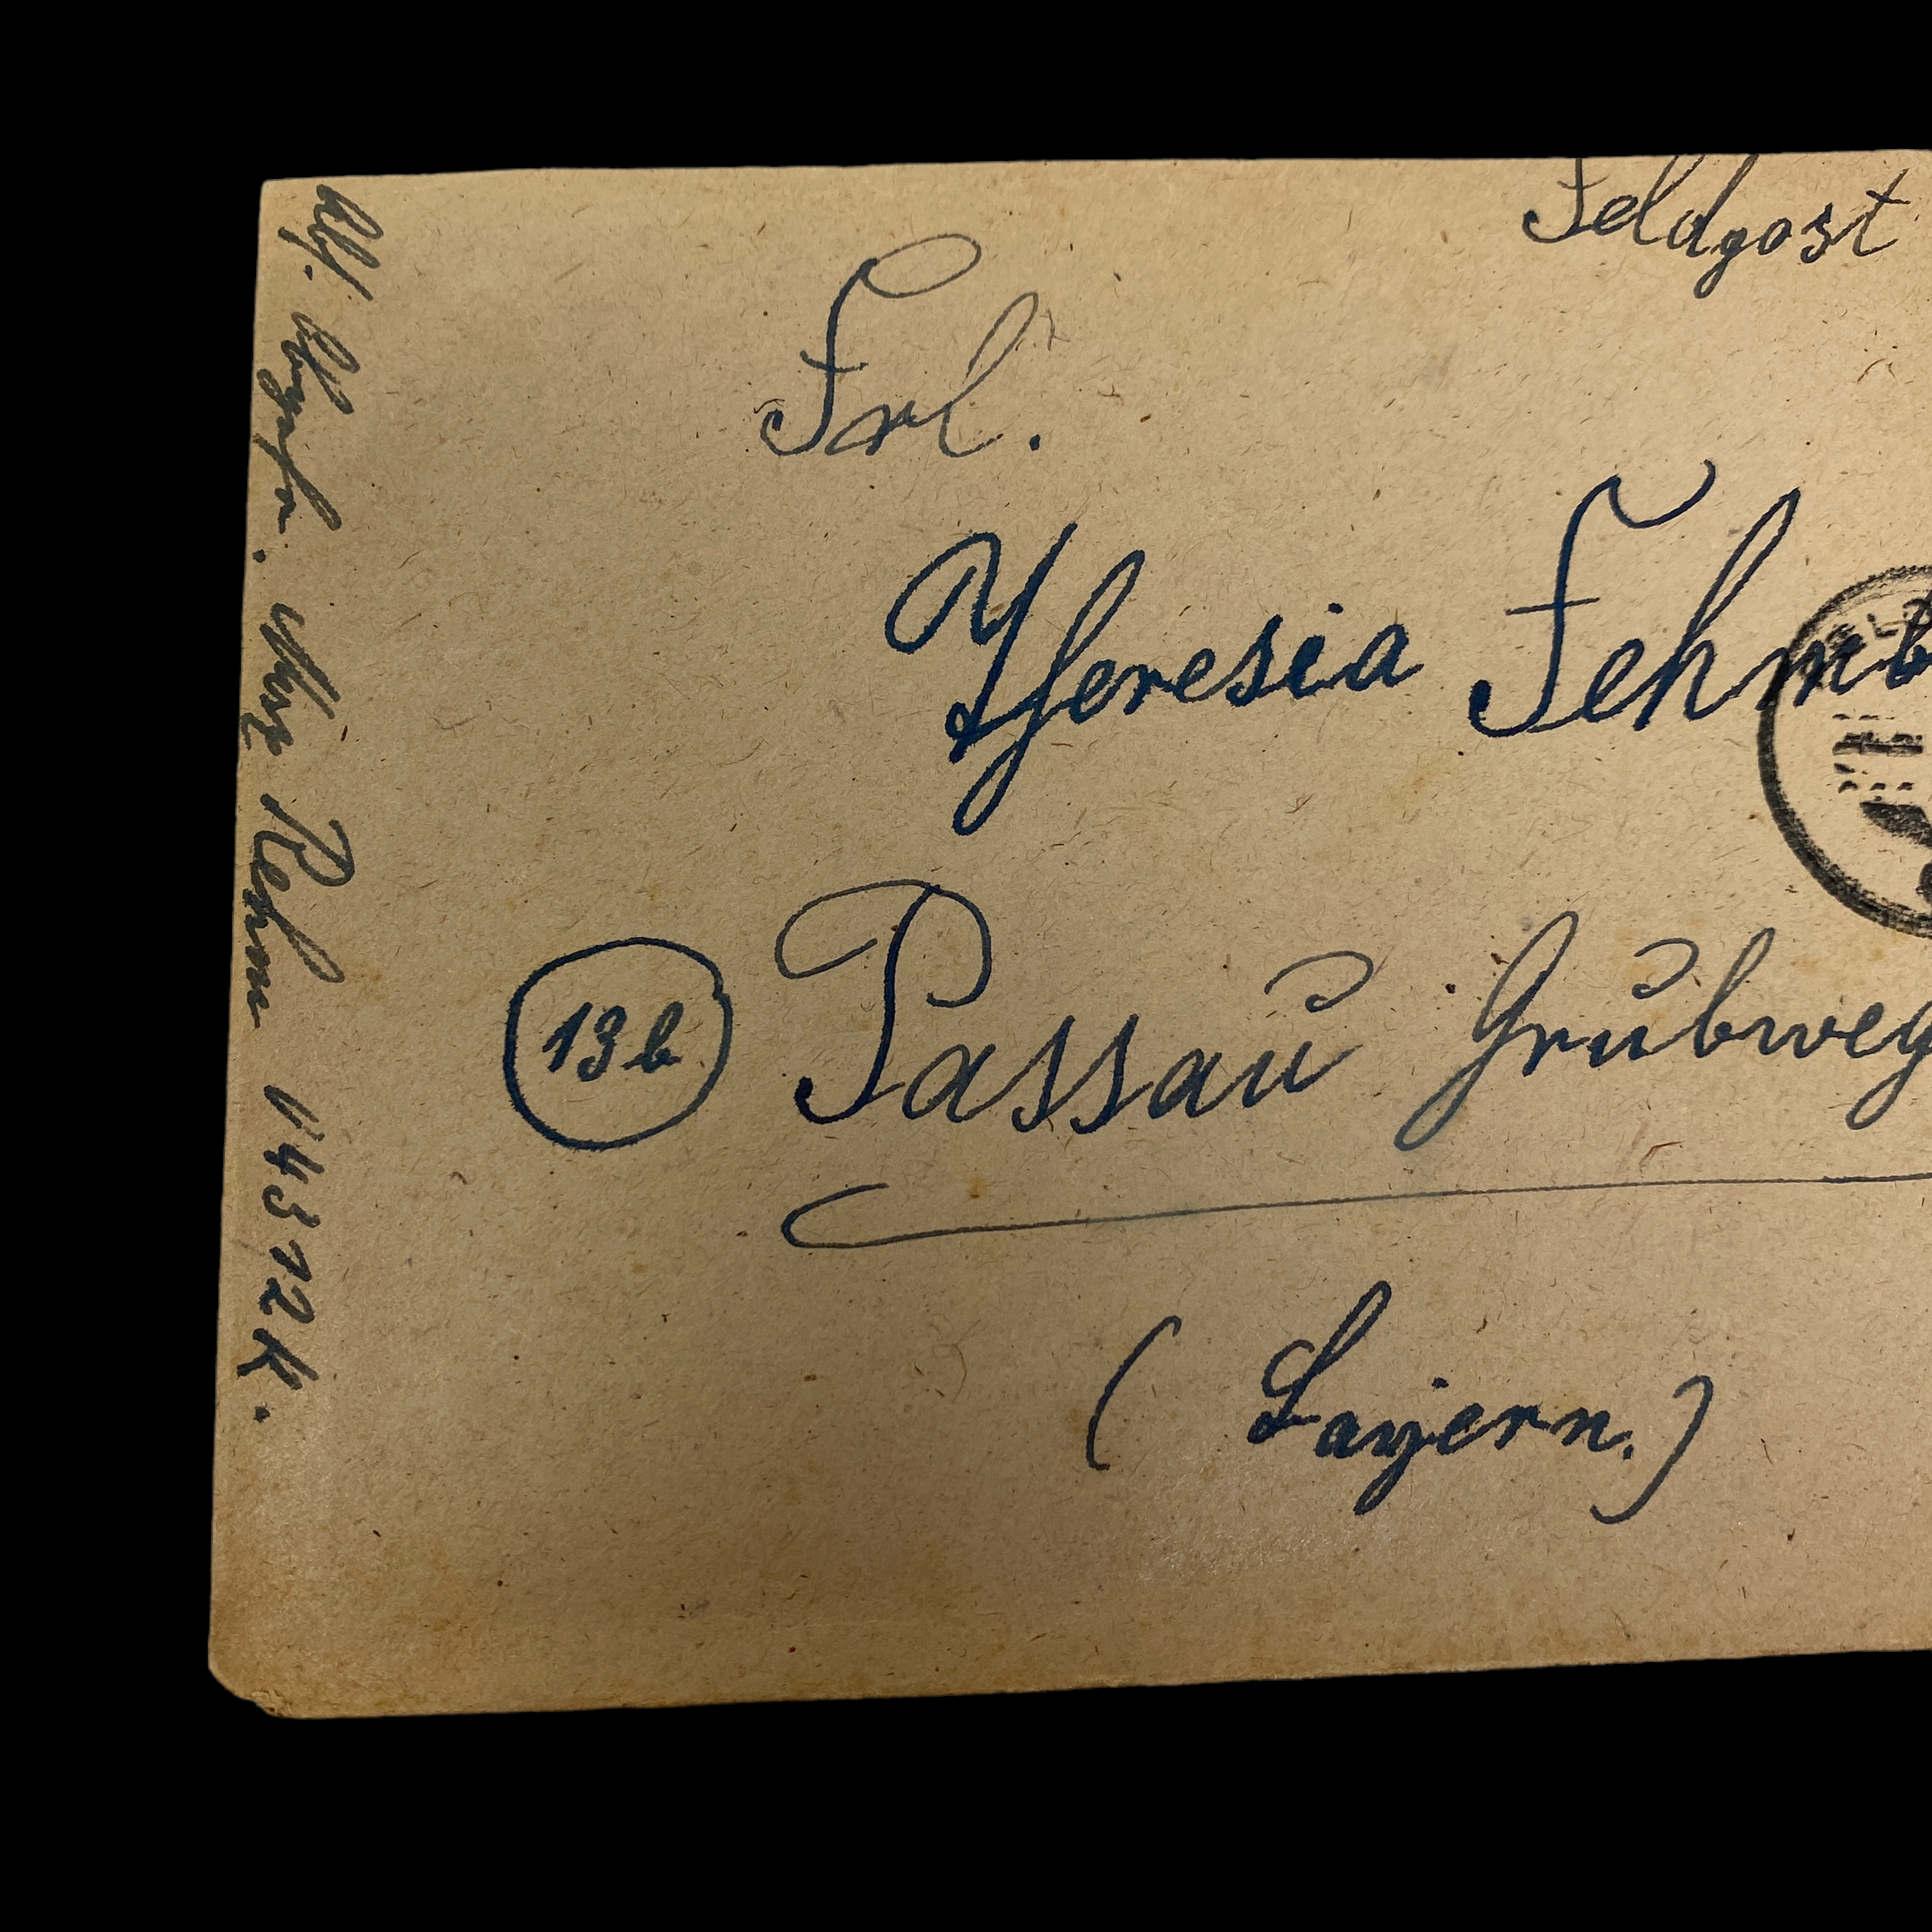 Feldpost
Frl.
Theresia Fehmb
13b Passau Grubweg
(Bayern.)
Rehm 14312K.